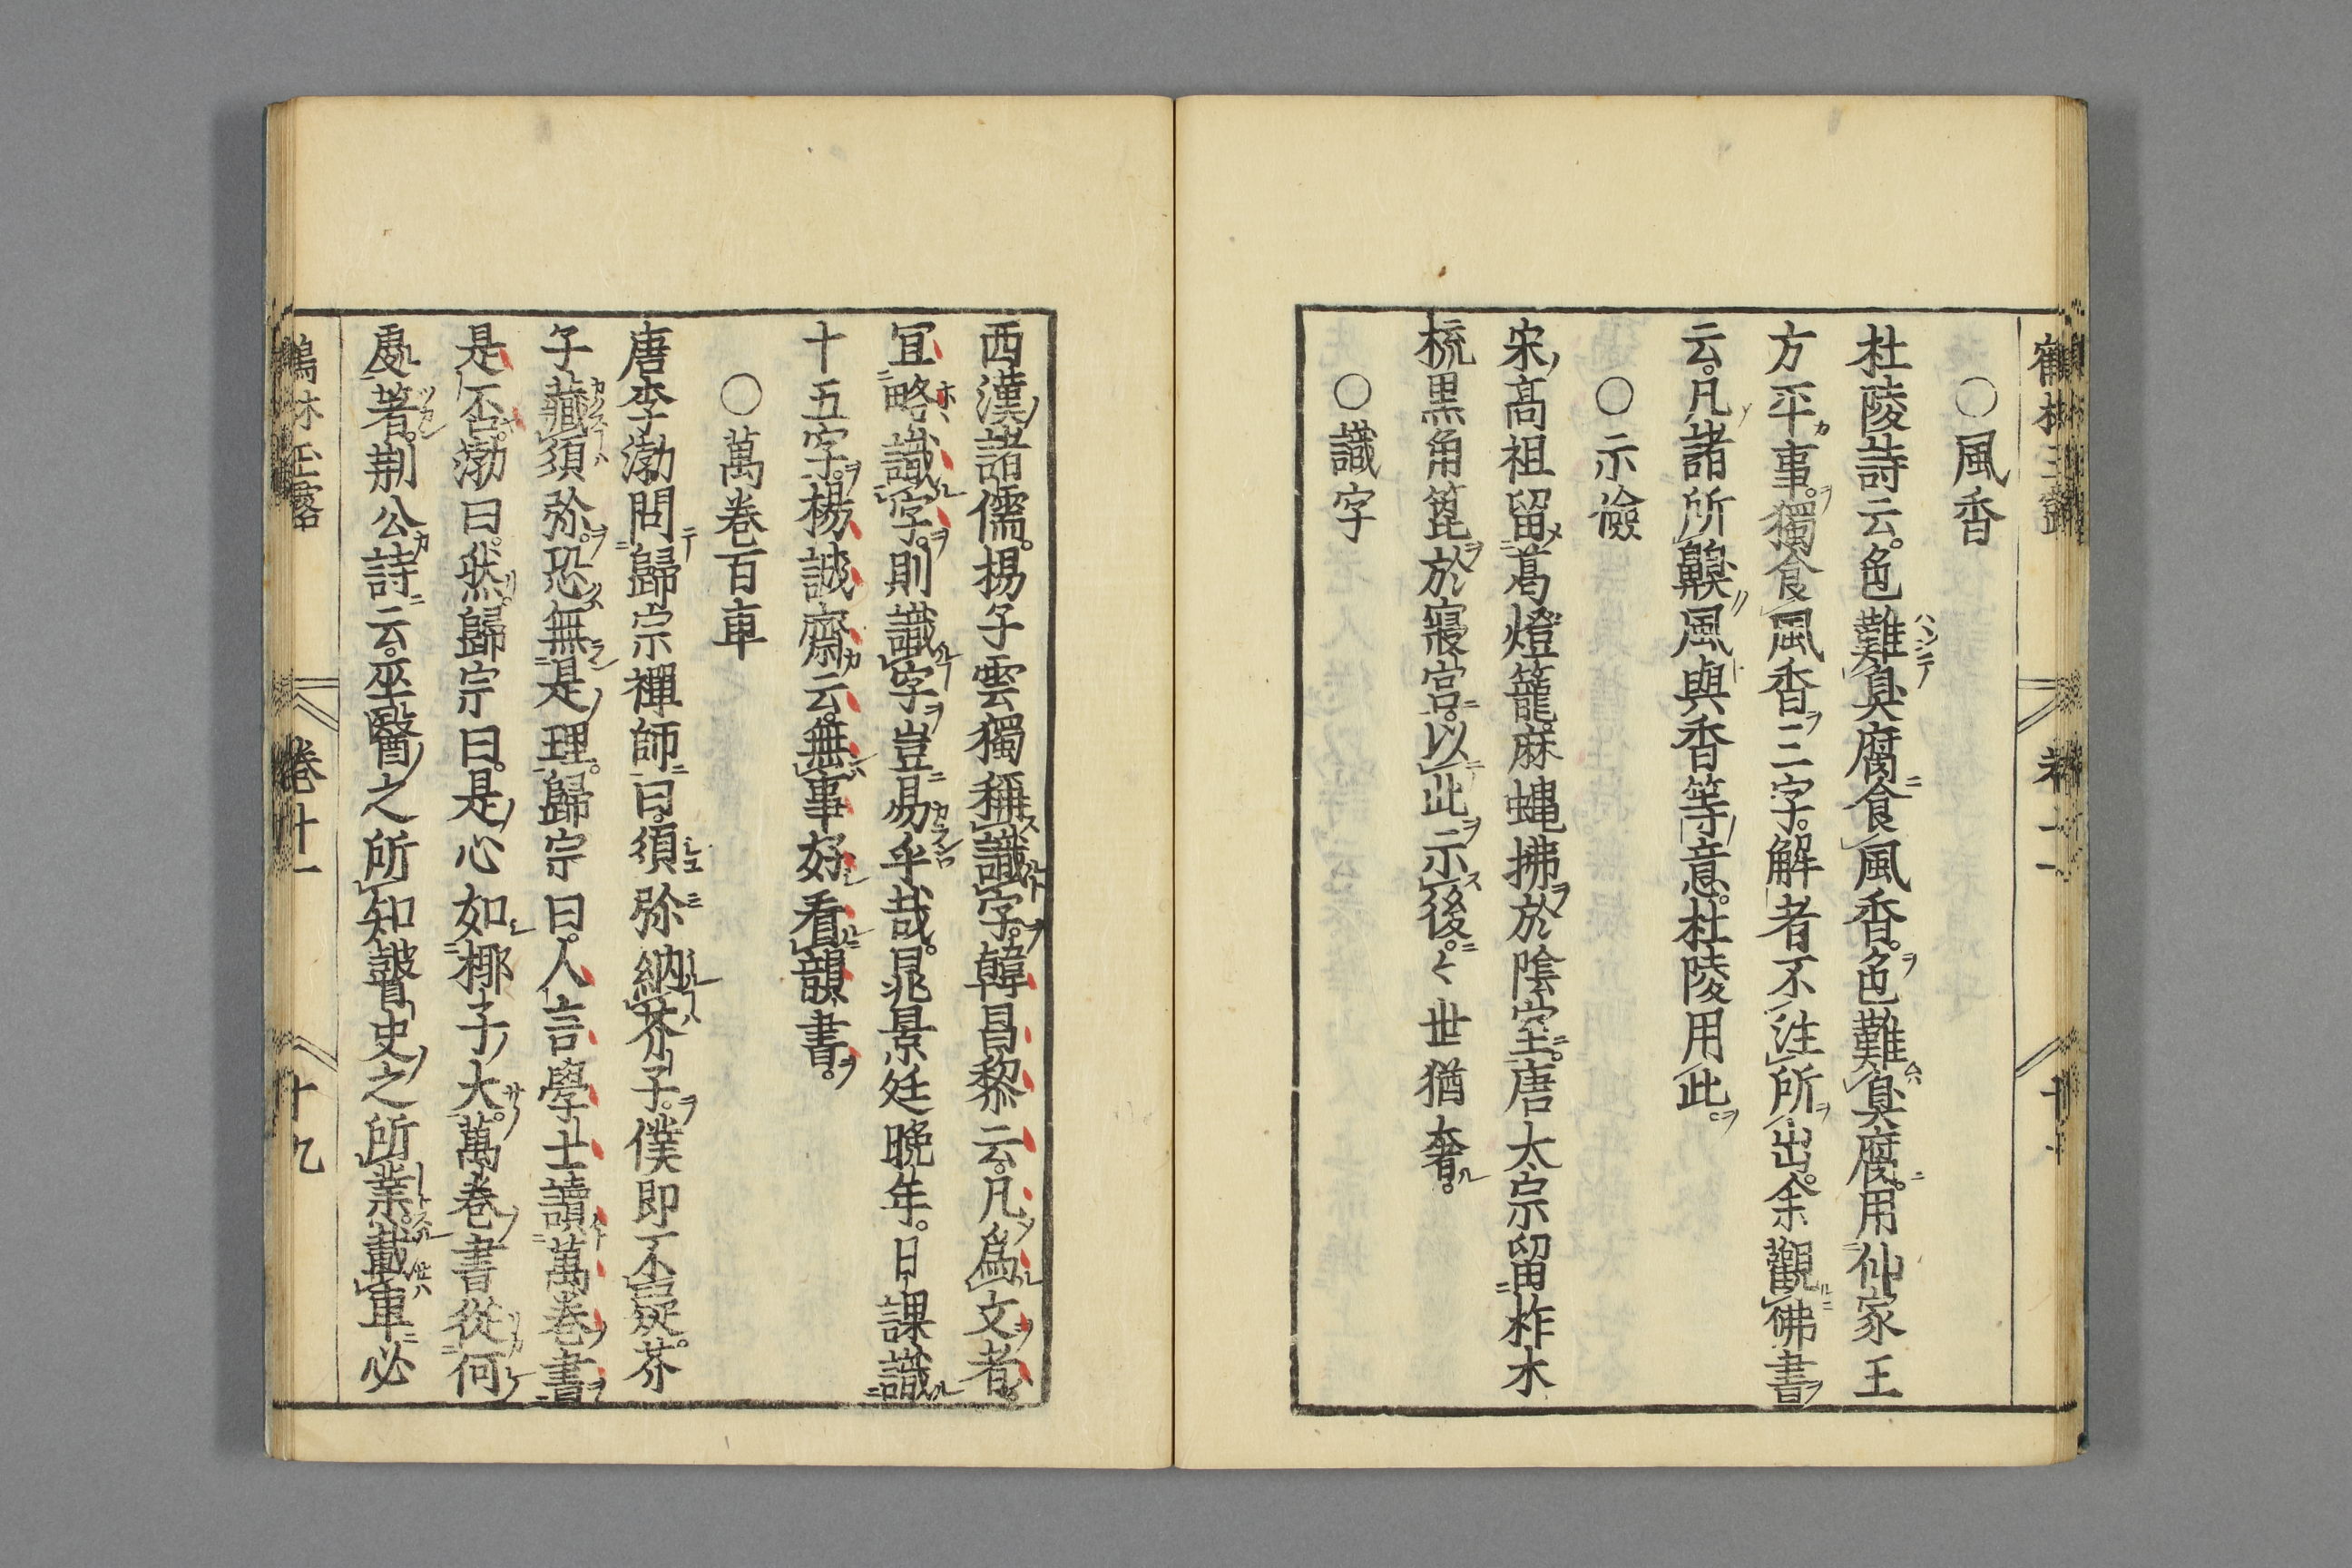 ○風香
杜陵詩云。色難臭腐食風香。色難臭腐。用仙家王
方平事。獨食風香三字。解者不注所出。余觀佛書
云。凡諸所齅風與香等意。杜陵用此。
○示儉
宋髙祖留葛燈籠麻蠅拂於陰室。唐太宗留柞木
梳黒角篦於寢宮。以此示後。〻世猶奢。
○識字
西漢諸儒。揚子雲獨稱識字。韓昌黎云。凡爲文者。
冝略識字。則識字豈易乎哉。晁景迂晩年。日課識
十五字。楊誠齋云。無事好看韻書。
○萬卷百車
唐李渤問歸宗禪師曰。須弥納芥子。僕即不疑。芥
子藏須弥。恐無是理。歸宗曰。人言學士讀萬卷書
是否。渤曰。然。歸宗曰。是心如椰子大。萬卷書從何
處著。荆公詩云。巫醫之所知。瞽史之所業。載車必
鶴林玉露　卷十一　十九